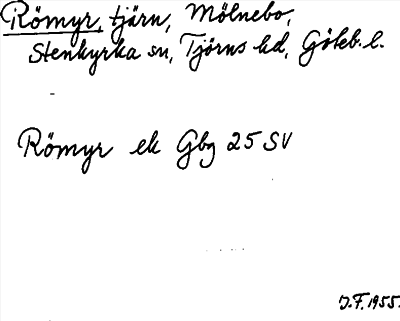 Römyr, tjärn, Mölnebo,
Stenkyrka sn, Tjörns hd, Göteb. l.
Römyr ek Gbg 25 SV
J.F. 1955.